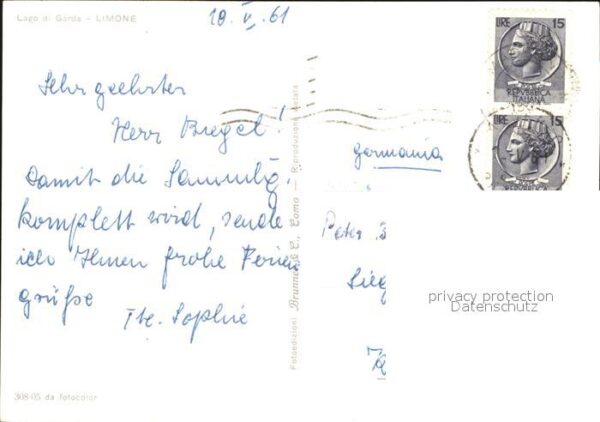 Lago di Garda - LIMONE
18. V. 61
Sehr geehrter
Herr Biegel!
Damit die Sammlg.
komplett wird, sende
ich Ihnen frohe Ferien
grüße
Ihre Sophie
Fotoedizioni Brunner & C., Como - Riproduzione vietata
308-05 da fotocolor
LIRE 15
REPVBBLICA
ITALIANA
LIRE 15
REPVBBLICA
Germania
Peter B
Sieg
privacy protection
Datenschutz